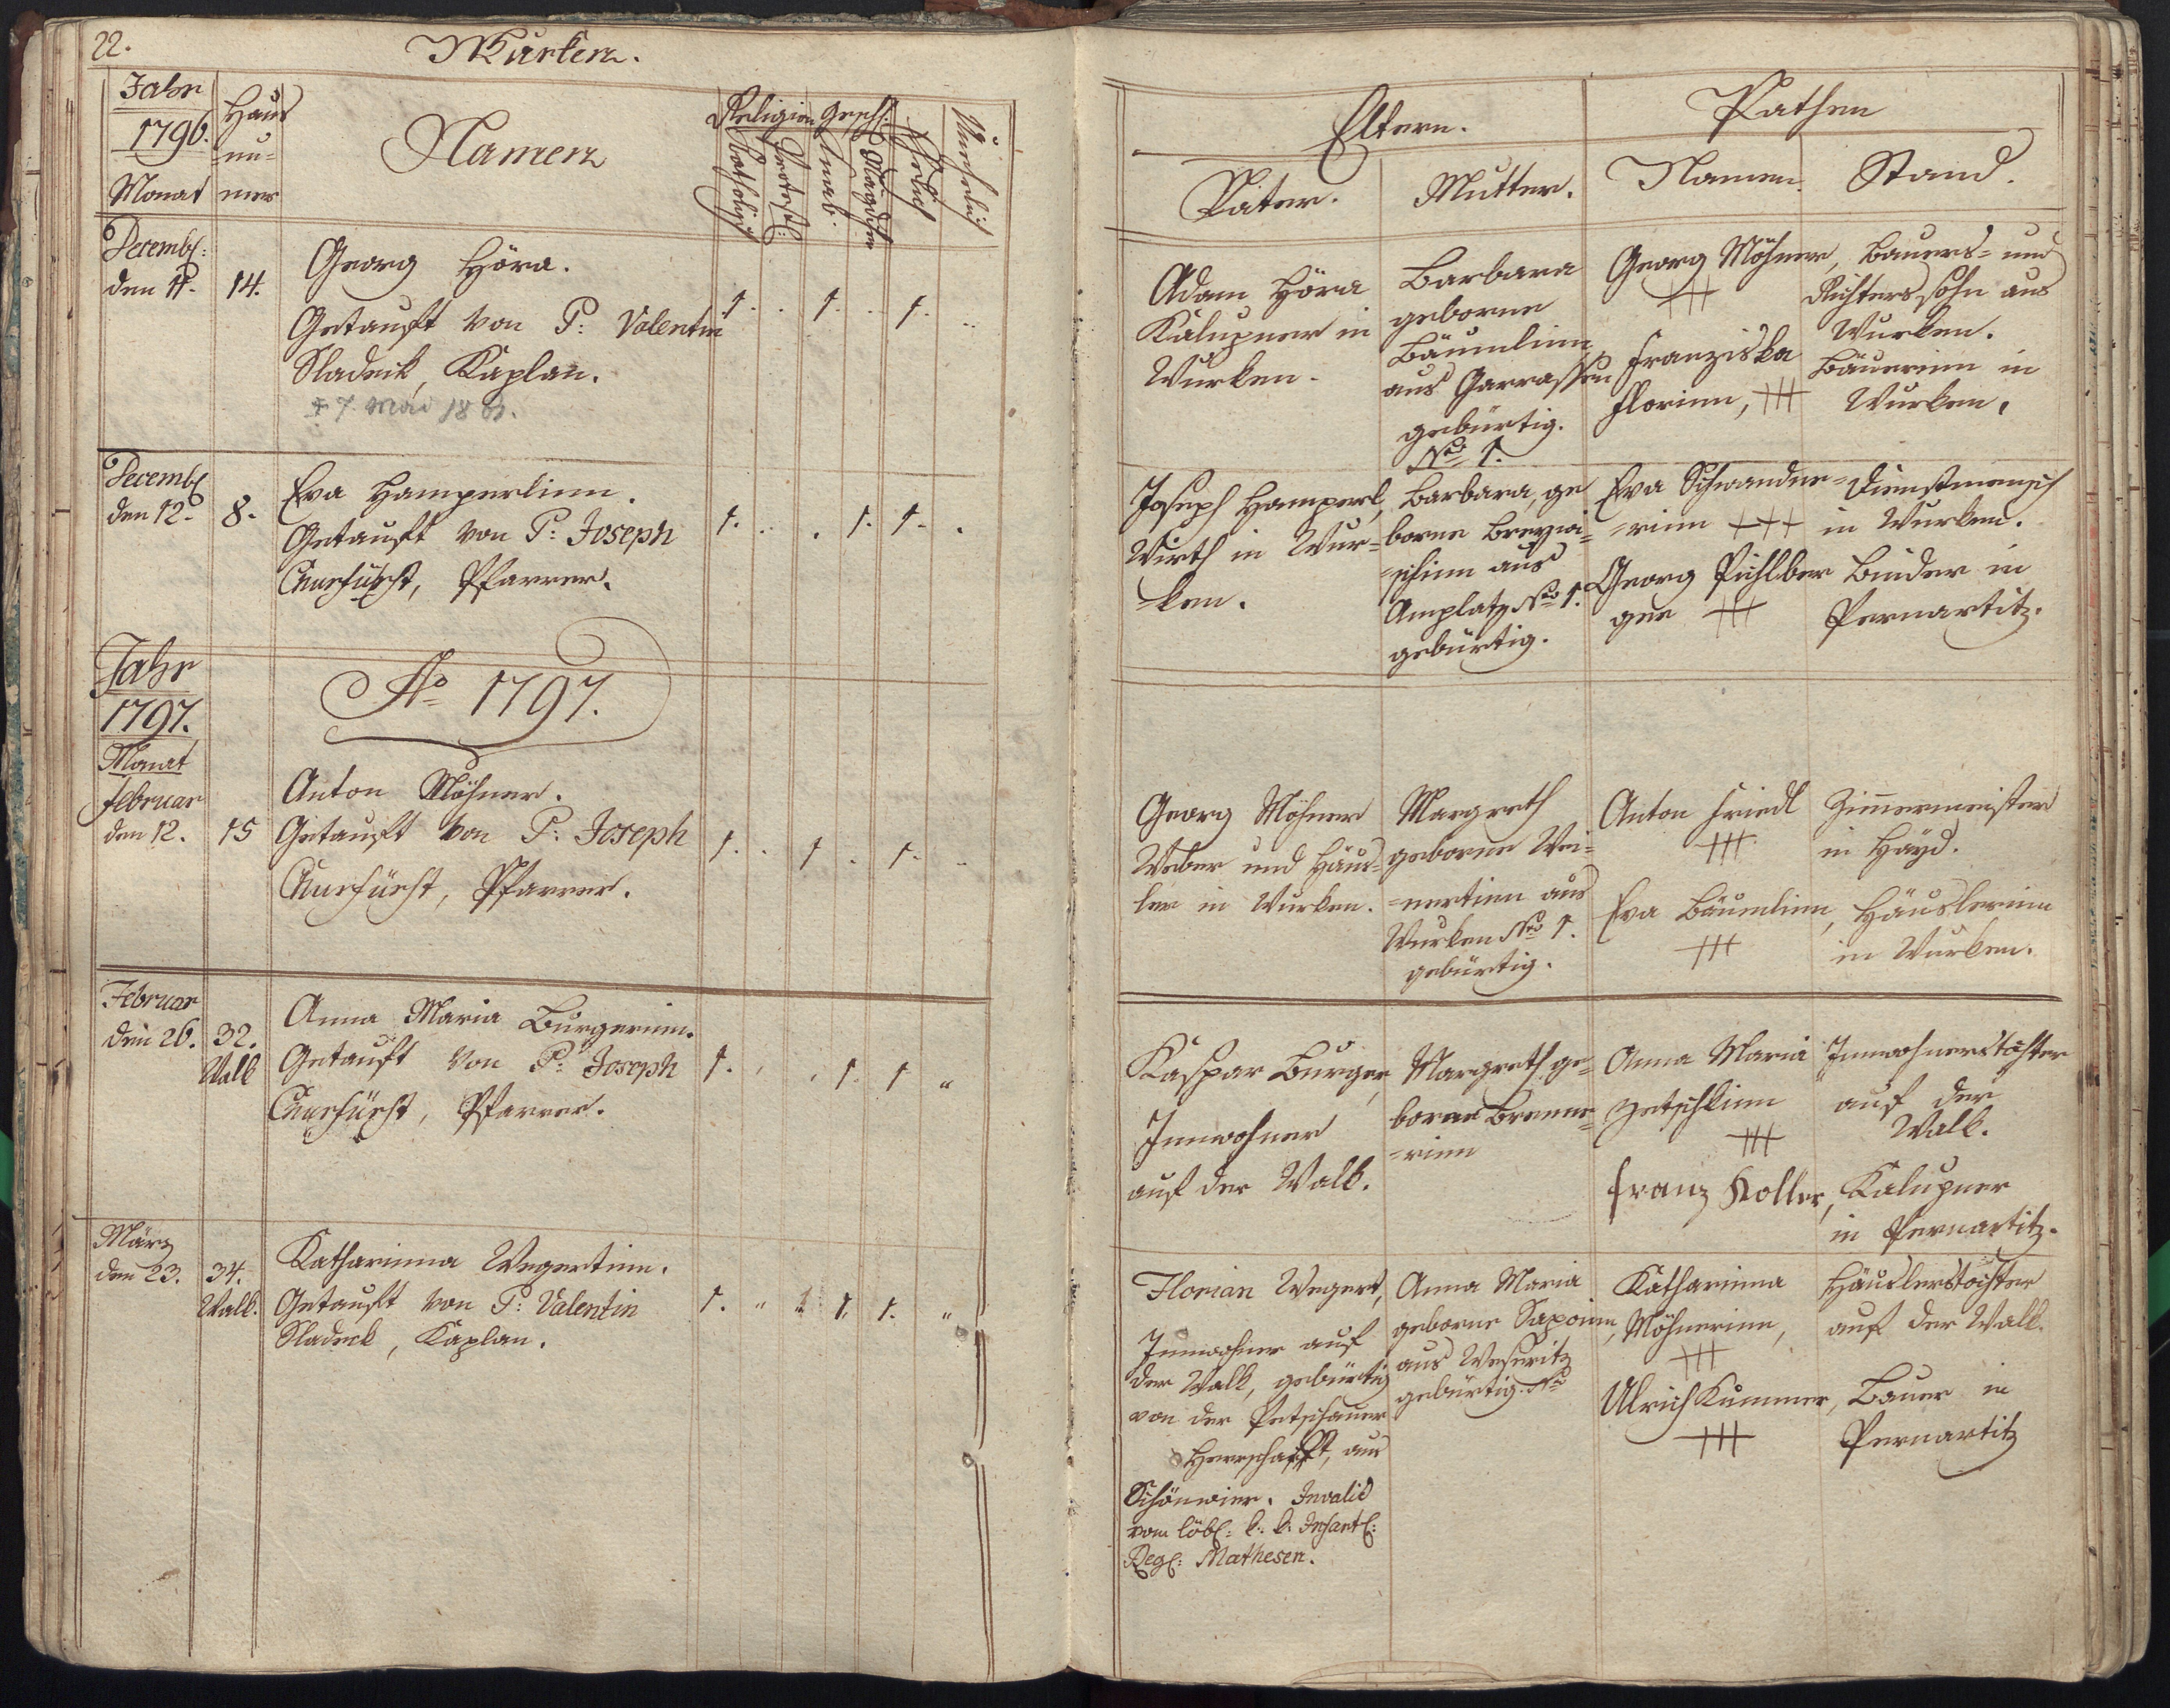 22.
Wurken.
Jahr
1796.
Monat
Haus
nu=
mer
Namen
Religion
Geschl:
Katholisch
Protest:
Knab.
Mägdchen
Ehelich
Unehelich
Decemb:
den 11.
14.
Georg Höra.
Getauft von P: Valentin
Sladeck, Kaplan.
7. Mai
1. . 1. . 1. ..
Decemb
den 12.
8.
Eva Hamperlinn.
Getauft von P: Joseph
Pfarrer.
1. .. . 1. 1. .
Jahr
1797.
Monat
Ao 1797.
Februar
den 12.
15
Anton Möhner.
Getauft von P: Joseph
Pfarrer.
1. . 1 . 1. ..
Februar
den 26.
32.
Walk
Anna Maria Burgerinn.
Getauft von P: Joseph
Pfarrer.
1. . . 1. 1 "
März
den 23.
34.
Walk.
Katharinna Wegertinn.
Getauft von P: Valentin
Sladeck, Kaplan.
1. " 1. 1. "
Eltern.
Vater.
Mutter.
Pathen
Namen.
Stand.
Adam Höra
Kalupner in
Wurken.
Barbara
geborne
Bäumlinn
aus Garrassen
gebürtig.
Nro 1.
Georg Möhner,
+++
Franziska
Florinn, +++
Bauers= und
Richterssohn aus
Wurken.
Bäuerinn in
Wurken.
Joseph Hamperl,
Wirth in Wur=
=ken.
Barbara, ge
borne
=schinn aus
Amplatz Nro 1.
gebürtig.
Eva Schwandne=
=rinn +++
Georg Pichlber
ger +++
Dienstmensch
in Wurken.
Binder in
Pernartitz.
Georg Möhner
Weber und Häus=
ler in Wurken.
Margreth
geborne Wei=
=nertinn aus
Wurken Nro 1.
gebürtig.
Anton Friedl
+++
Eva Bäumlinn,
+++
Zimmermeister
in Hayd.
Häuslerinn
in Wurken.
Kaspar Burger,
Innwohner
auf der Walk.
Margreth ge=
borne Brenne=
=rinn
Anna Maria
Zetschkinn
+++
Franz Koller,
Innwohnerstochter
auf der
Walk.
Kalupner
in Pernartitz.
Florian Wegert,
Innwohner auf
der Walk, gebürtig
von der Petschauer
Herrschafft, aus
Schönwier. Invalid
vom löbl: k: k: Infant:
Reg: Mathesen.
Anna Maria
geborne
aus Weseritz
gebürtig. Nro
Katharinna
Möhnerinn,
+++
Ulrich Kummer,
+++
Häuslerstochter
auf der Walk.
Bauer in
Pernartitz